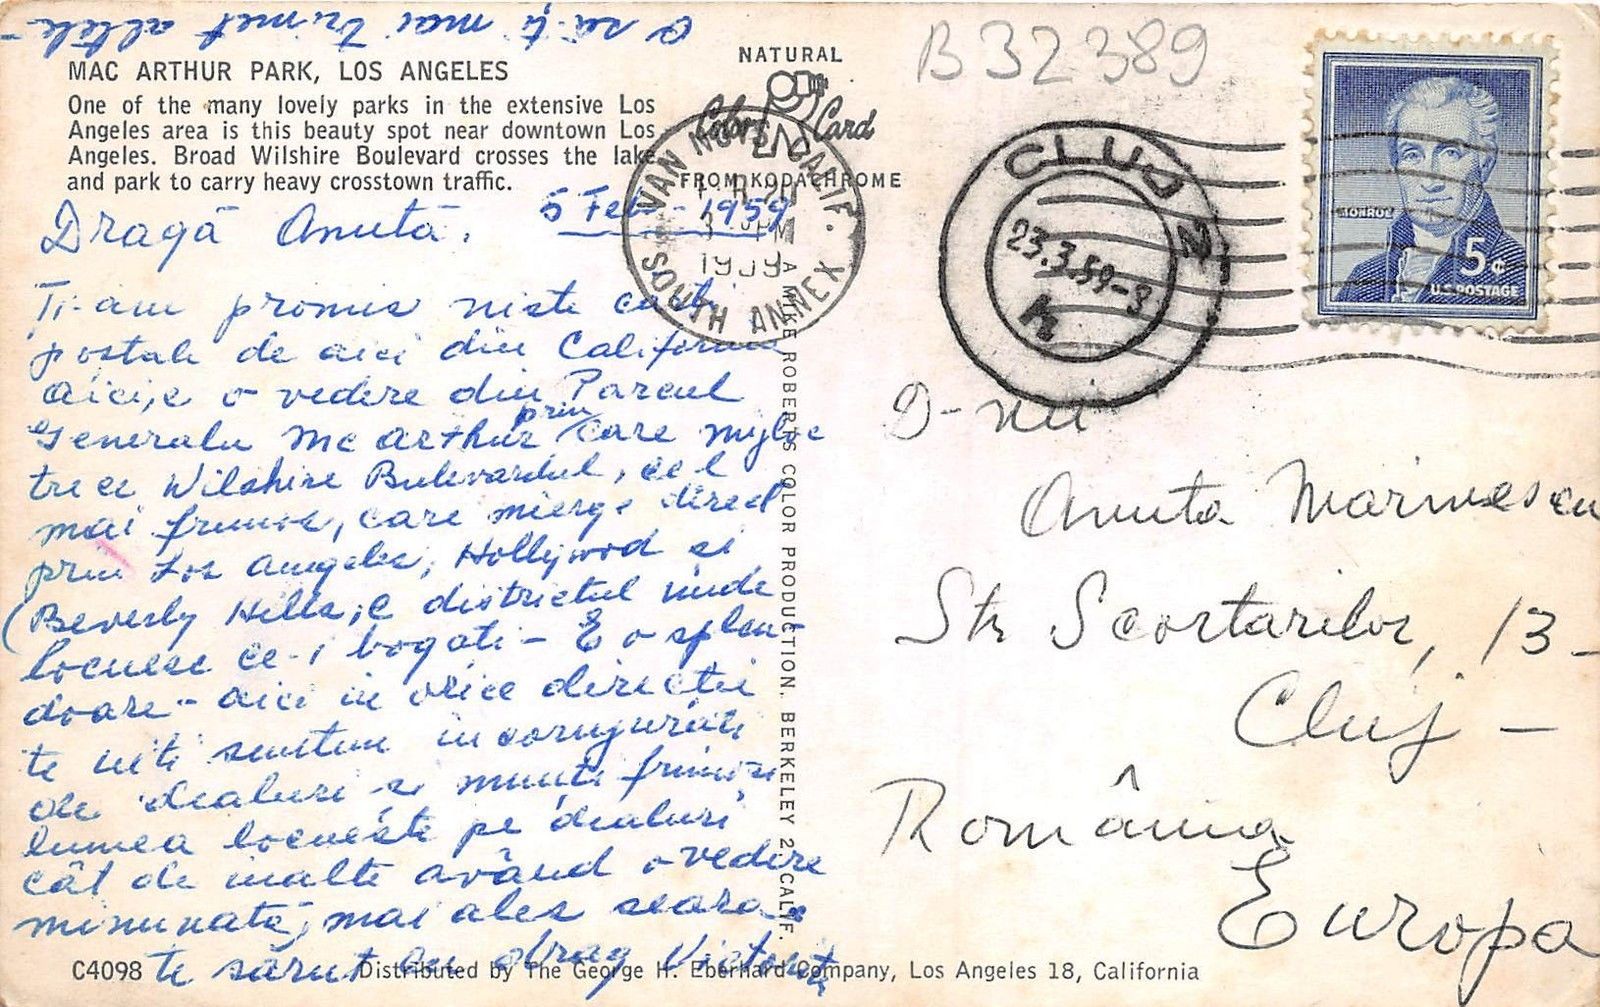 O să-ți mai trimet altele -
MAC ARTHUR PARK, LOS ANGELES
One of the many lovely parks in the extensive Los
Angeles area is this beauty spot near downtown Los
Angeles. Broad Wilshire Boulevard crosses the lake
and park to carry heavy crosstown traffic.
5 Feb. - 1959
Dragă Anuta,
Ti-am promis niste carti
postale de aici din California
aici, e o vedere din Parcul
Generalu Mc Arthur prin care mijloc
trece Wilshire Bulevardul, cel
mai frumos, care merge direct
prin Los Angeles, Hollywod si
(Beverly Hills, e districtul unde
locuesc ce-i bogati - E o splen-
doare - aici in orice directie
te uiti suntem incongurati
de dealuri si munti frumosi
lumea locueste pe dealuri
cât de inalte având o vedere
minunată, mai ales seara.
te sărut cu drag
C4098
Distributed by The George H. Eberhard Company, Los Angeles 18, California
NATURAL
Color Card
FROM KODACHROME
A MIKE ROBERTS COLOR PRODUCTION. BERKELEY 2, CALIF.
VAN NUYS, CALIF.
PM
1959
SOUTH ANNEX
B32389
CLUJ
23.3.59-8
MONROE
5¢
U.S. POSTAGE
D-nei
Anuta Marinescu
Str Scortarilor, 13 -
Cluj -
România
Europa